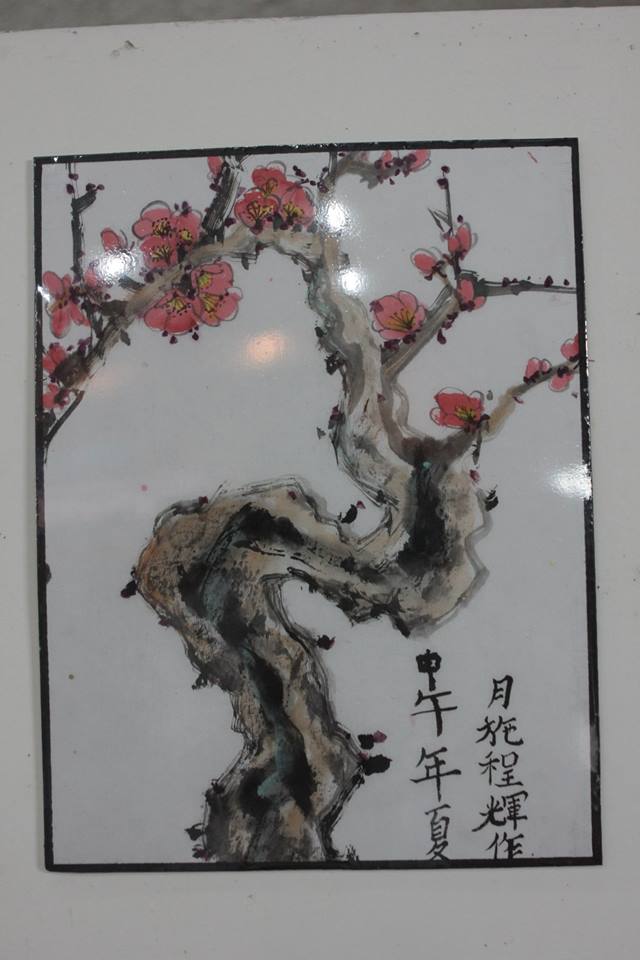 甲午年夏
月施程輝作